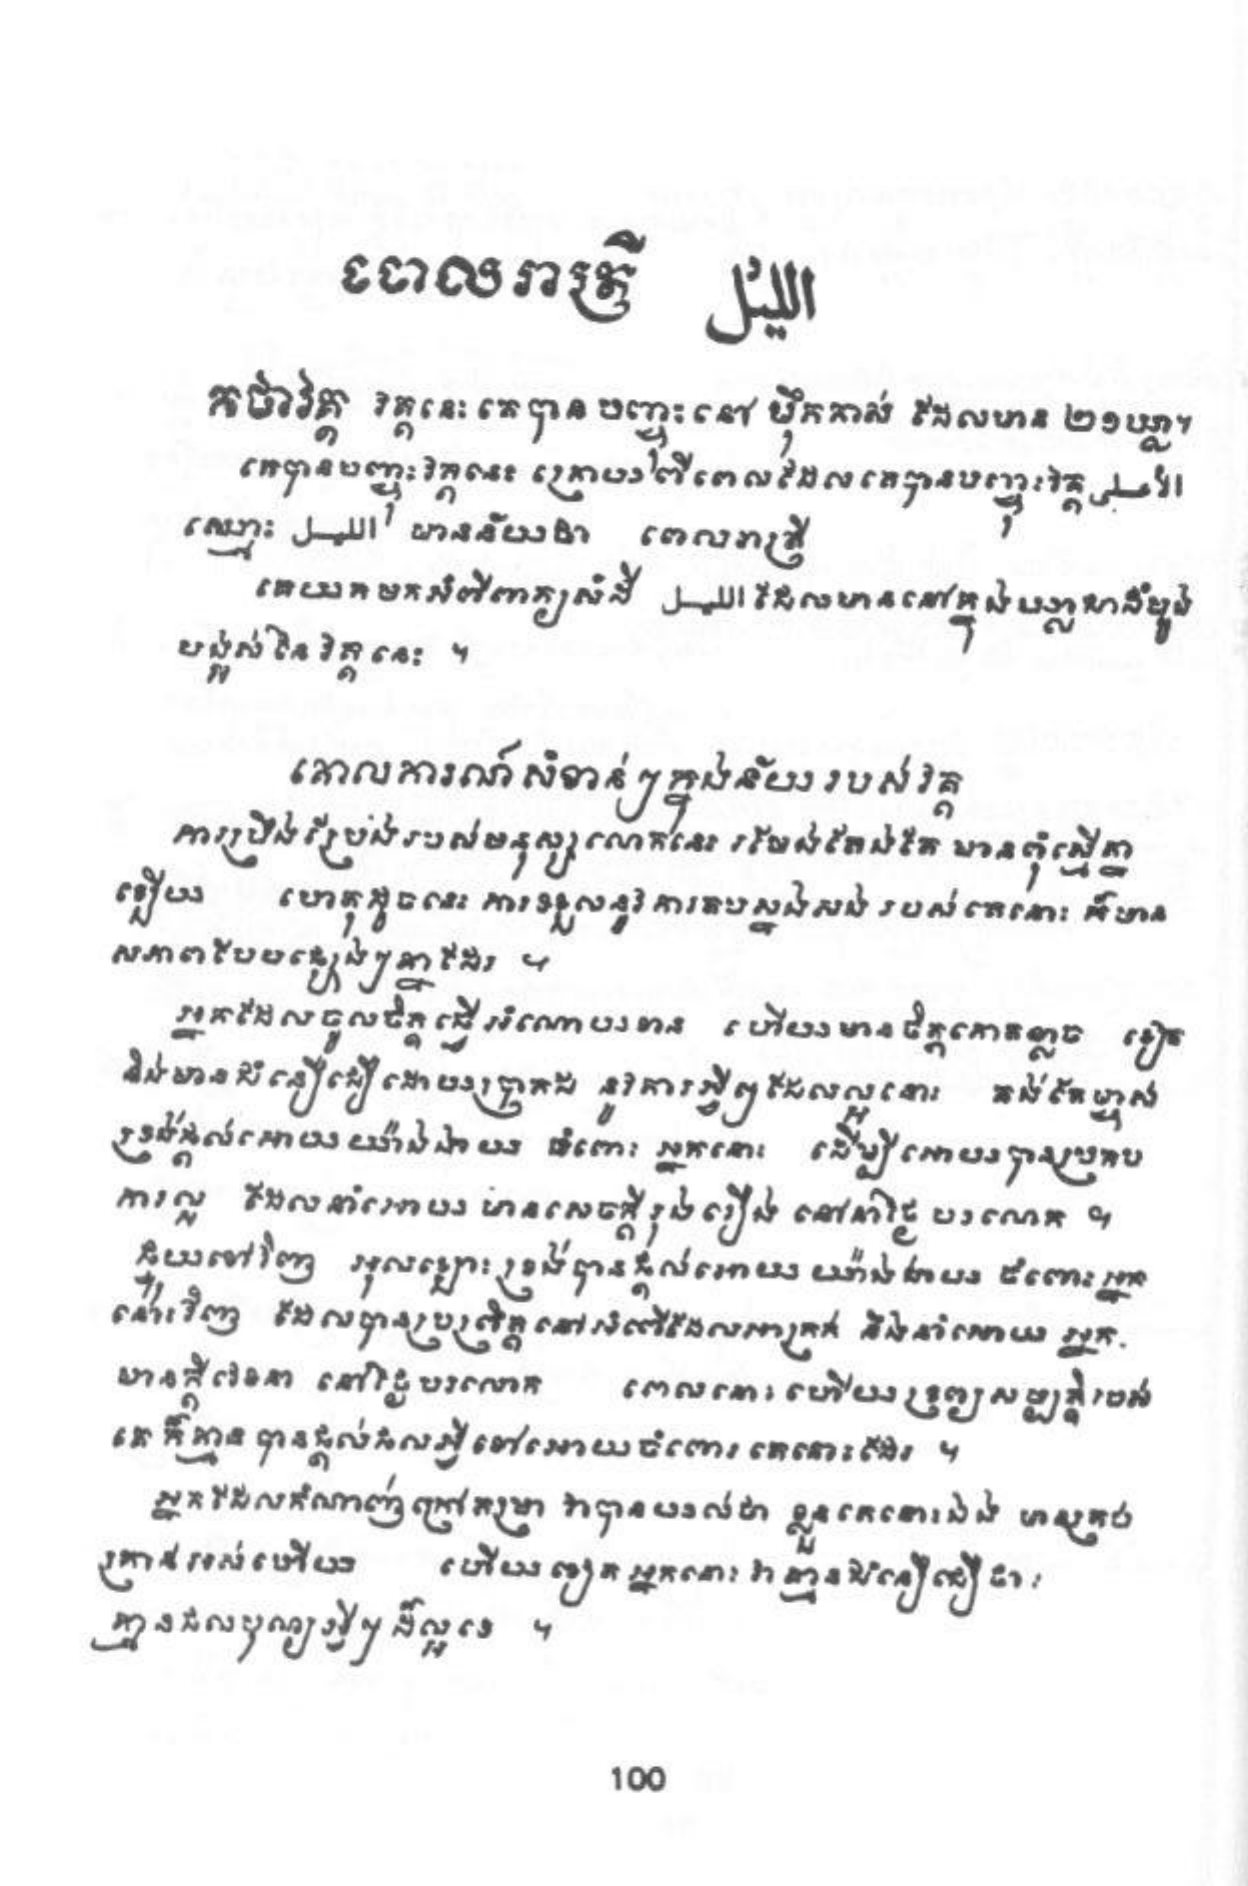 ពេលរាត្រី الليل
កថាវគ្គ វគ្គនេះគេបានបញ្ចុះនៅ ម៉ឹកកាស់ ដែលមាន ២១ឃ្លា។
គេបានបញ្ចុះវគ្គនេះ ក្រោយពីពេលដែលគេបានបញ្ចុះវគ្គ
ឈ្មោះ الليل មានន័យថា ពេលរាត្រី
គេយកមកអំពីពាក្យសំដី الليل ដែលមាននៅក្នុងឃ្លាទីមួយ
បង្អស់នៃវគ្គនេះ ។
គោលការណ៍សំខាន់ៗក្នុងន័យរបស់វគ្គ
ការប្រឹងប្រែងរបស់មនុស្សលោកនេះ រមែងតែងតែ មានពុំស្មើគ្នា
ឡើយ ហេតុដូចនេះ ការទទួលនូវការតបស្នងសង របស់គេនោះ ក៏មាន
សភាពបែបផ្សេងៗគ្នាដែរ ។
អ្នកដែលចូលចិត្តធ្វើអំណោយទាន ហើយមានចិត្តកោតខ្លាច ទៀត
និងមានជំនឿជឿដោយប្រាកដ នូវការអ្វីៗដែលល្អនោះ គង់តែម្ចាស់
ទ្រង់ផ្តល់អោយយ៉ាងងាយ ចំពោះ អ្នកនោះ ដើម្បីអោយបានប្រកប
ការល្អ ដែលនាំអោយ មានសេចក្តីរុងរឿង នៅនាថ្ងៃ បរលោក ។
ផ្ទុយទៅវិញ អុលឡោះ ទ្រង់បានផ្តល់អោយ យ៉ាងងាយ ចំពោះអ្នក
នោះវិញ ដែលបានប្រព្រឹត្តនៅអំពើដែលអាក្រក់ នឹងនាំអោយ អ្នក
មានក្តីវេទនា នៅថ្ងៃបរលោក ពេលនោះហើយទ្រព្យសម្បត្តិរបស់
គេក៏គ្មានបានផ្តល់ផលអ្វីទៅអោយចំពោះគេនោះដែរ ។
អ្នកដែលកំណាញ់ក្រៅតម្រា វាបានយល់ថា ខ្លួនគេនោះឯង មានគ្រប់
គ្រាន់អស់ហើយ ហើយទៀតអ្នកនោះ វាគ្មានជំនឿជឿថា
គ្មានផលបុណ្យអ្វីៗដ៏ល្អទេ ។
100